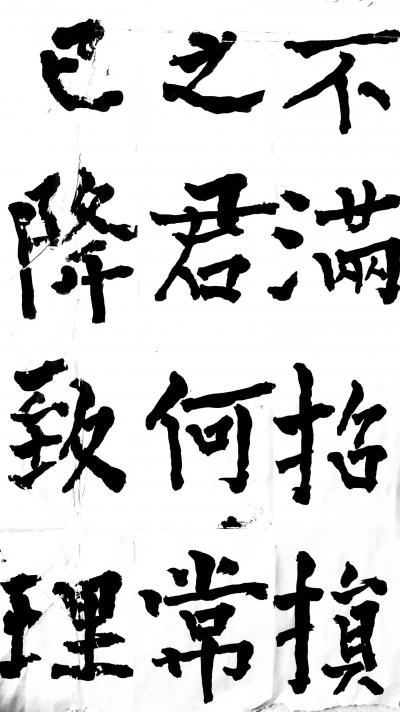 不满招損
之君何常
已降致理